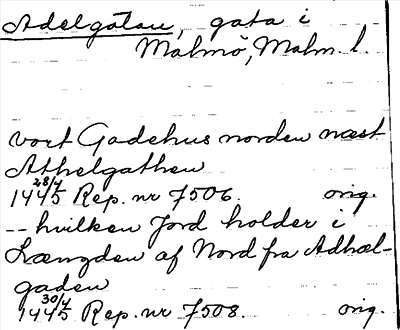 Adelgatan, gata i
Malmö, Malm. l.
vort Gadehus norden næst
Athelgathen
1445 28/7 Rep. nr 7506. orig.
-- hvilken Jord holder i
Længden af Nord fra Adhæl-
gaden
1445 30/7 Rep. nr 7508. orig.